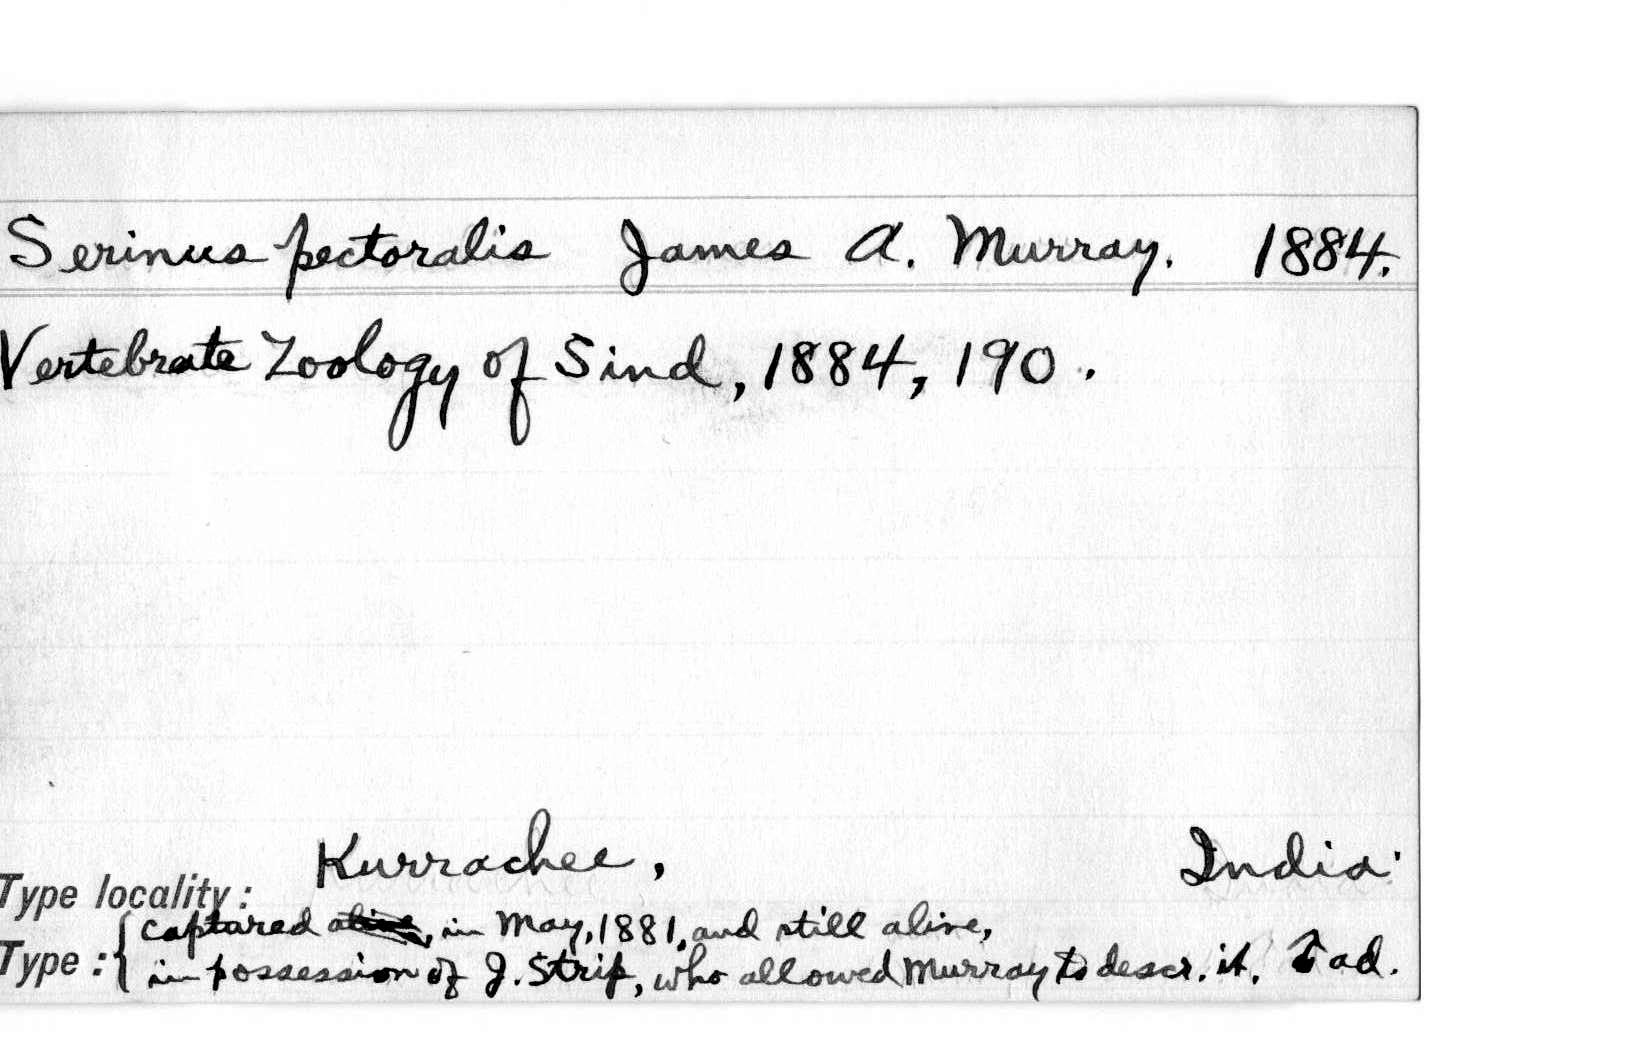 Serinus pectoralis James A. Murray. 1884.
Vertebrate Zoology of Sind, 1884, 190.
Type locality: Kurrachee, India.
captured alive, in May, 1881, and still alive,
Type: in possession of J. Strip, who allowed Murray to descr. it. ♂ ad.